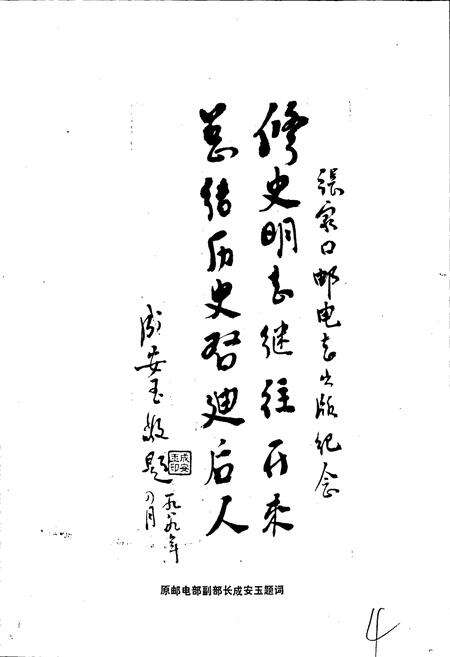 張家口邮电志出版纪念
修史明志继往开来
总结历史启迪后人
成安玉敬题
成安玉印
一九八九年
月
原邮电部副部长成安玉题词
4